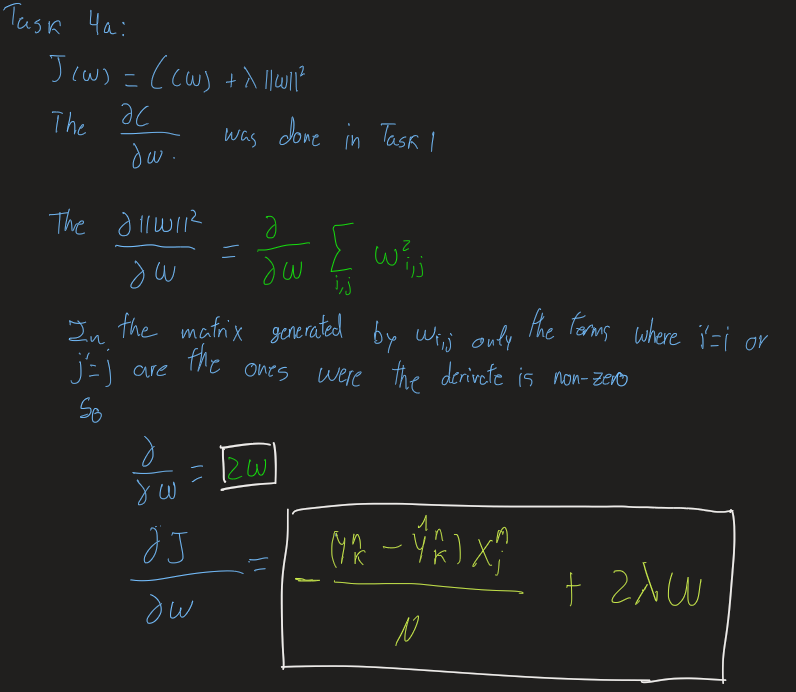 Task 4a:
J(w) = C(w) + λ ||w||²
The ∂C/∂w. was done in Task 1
The ∂||w||²/∂w = ∂/∂w ∑_{i,j} w²_{i,j}
In the matrix generated by w_{i,j} only the terms where i'=i or
j'=j are the ones were the derivate is non-zero
So
∂/∂w = 2w
∂J/∂w = - (y^n_k - ŷ^n_k) x^n_j / N + 2λw